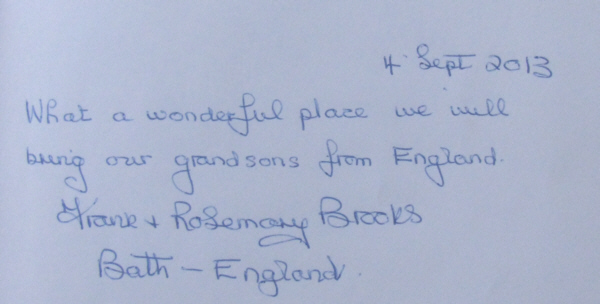 4 Sept 2013
What a wonderful place we will
bring our grandsons from England.
Frank + Rosemary Brooks
Bath - England.